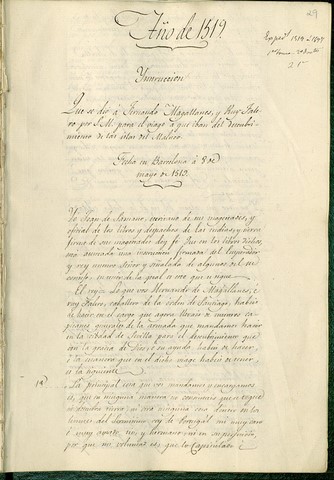 29
Año de 1519.
Exped.
Ynstruccion
Que se dió á Fernando Magallanes, y Ruy Fale-
ro por S.M. para el viage á que iban del descubri-
miento de las islas del Maluco.
Fecha en Barcelona á 8 de
mayo de 1519.
Yo Juan de Samano, escribano de sus magestades, y
oficial de los libros y despachos de las Indias, doy
fe que en los libros dichos,
está asentada una instruccion firmada del Emperador
y rey nuestro señor y señalada de algunos del su
consejo, su tenor de la qual es este que se sigue.
El rey = Lo que vos Hernando de Magallanes, é
ruy Falero, caballeros de la orden de Santiago, habeis
de hacer en el cargo que agora llevais de nuestros ca-
pitanes generales de la armada que mandamos hacer
en la ciudad de Sevilla para el descubrimiento que
con la gracia de Dios é en su ayuda habeis de hacer,
é la manera que en el dicho viage habeis de tener,
es la siguiente.
1ª La principal cosa que vos mandamos é encargamos
es, que en ninguna manera no consintais que se toque
ni descubra tierra, ni otra ninguna cosa dentro en los
límites del serenísimo rey de Portugal mi muy caro
é muy amado tio, y hermano ni en su perjuicio,
por que mi voluntad es, que lo capitulado é